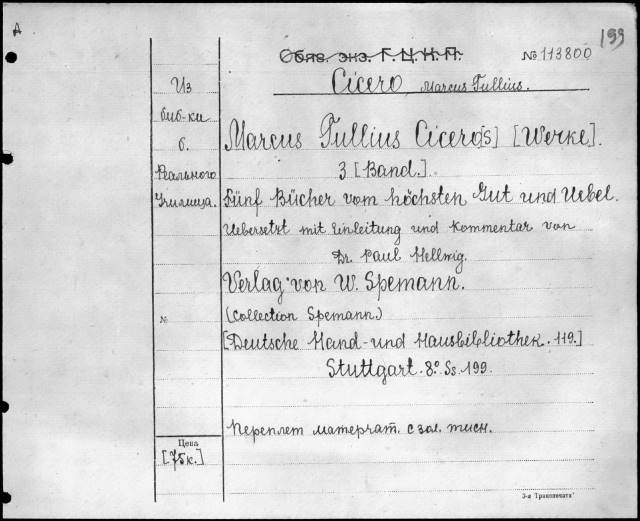 A
199
Обяз. экз. Г. Ц. К. П.
№ 113800
Cicero, Marcus Tullius.
Из
биб-ки
б.
Реального
Училища.
Marcus Tullius Cicero[s] [Werke].
3 [Band.]
Fünf Bücher vom höchsten Gut und Uebel.
Uebersetzt mit Einleitung und Kommentar von
Dr. Paul Hellwig.
Verlag von W. Spemann.
№
(Collection Spemann.)
[Deutsche Hand- und Hausbibliothek. 119.]
Stuttgart. 8º. Ss. 199.
Переплет матерчат. с зол. тисн.
Цена
[75к.]
3-я "Транспечать"